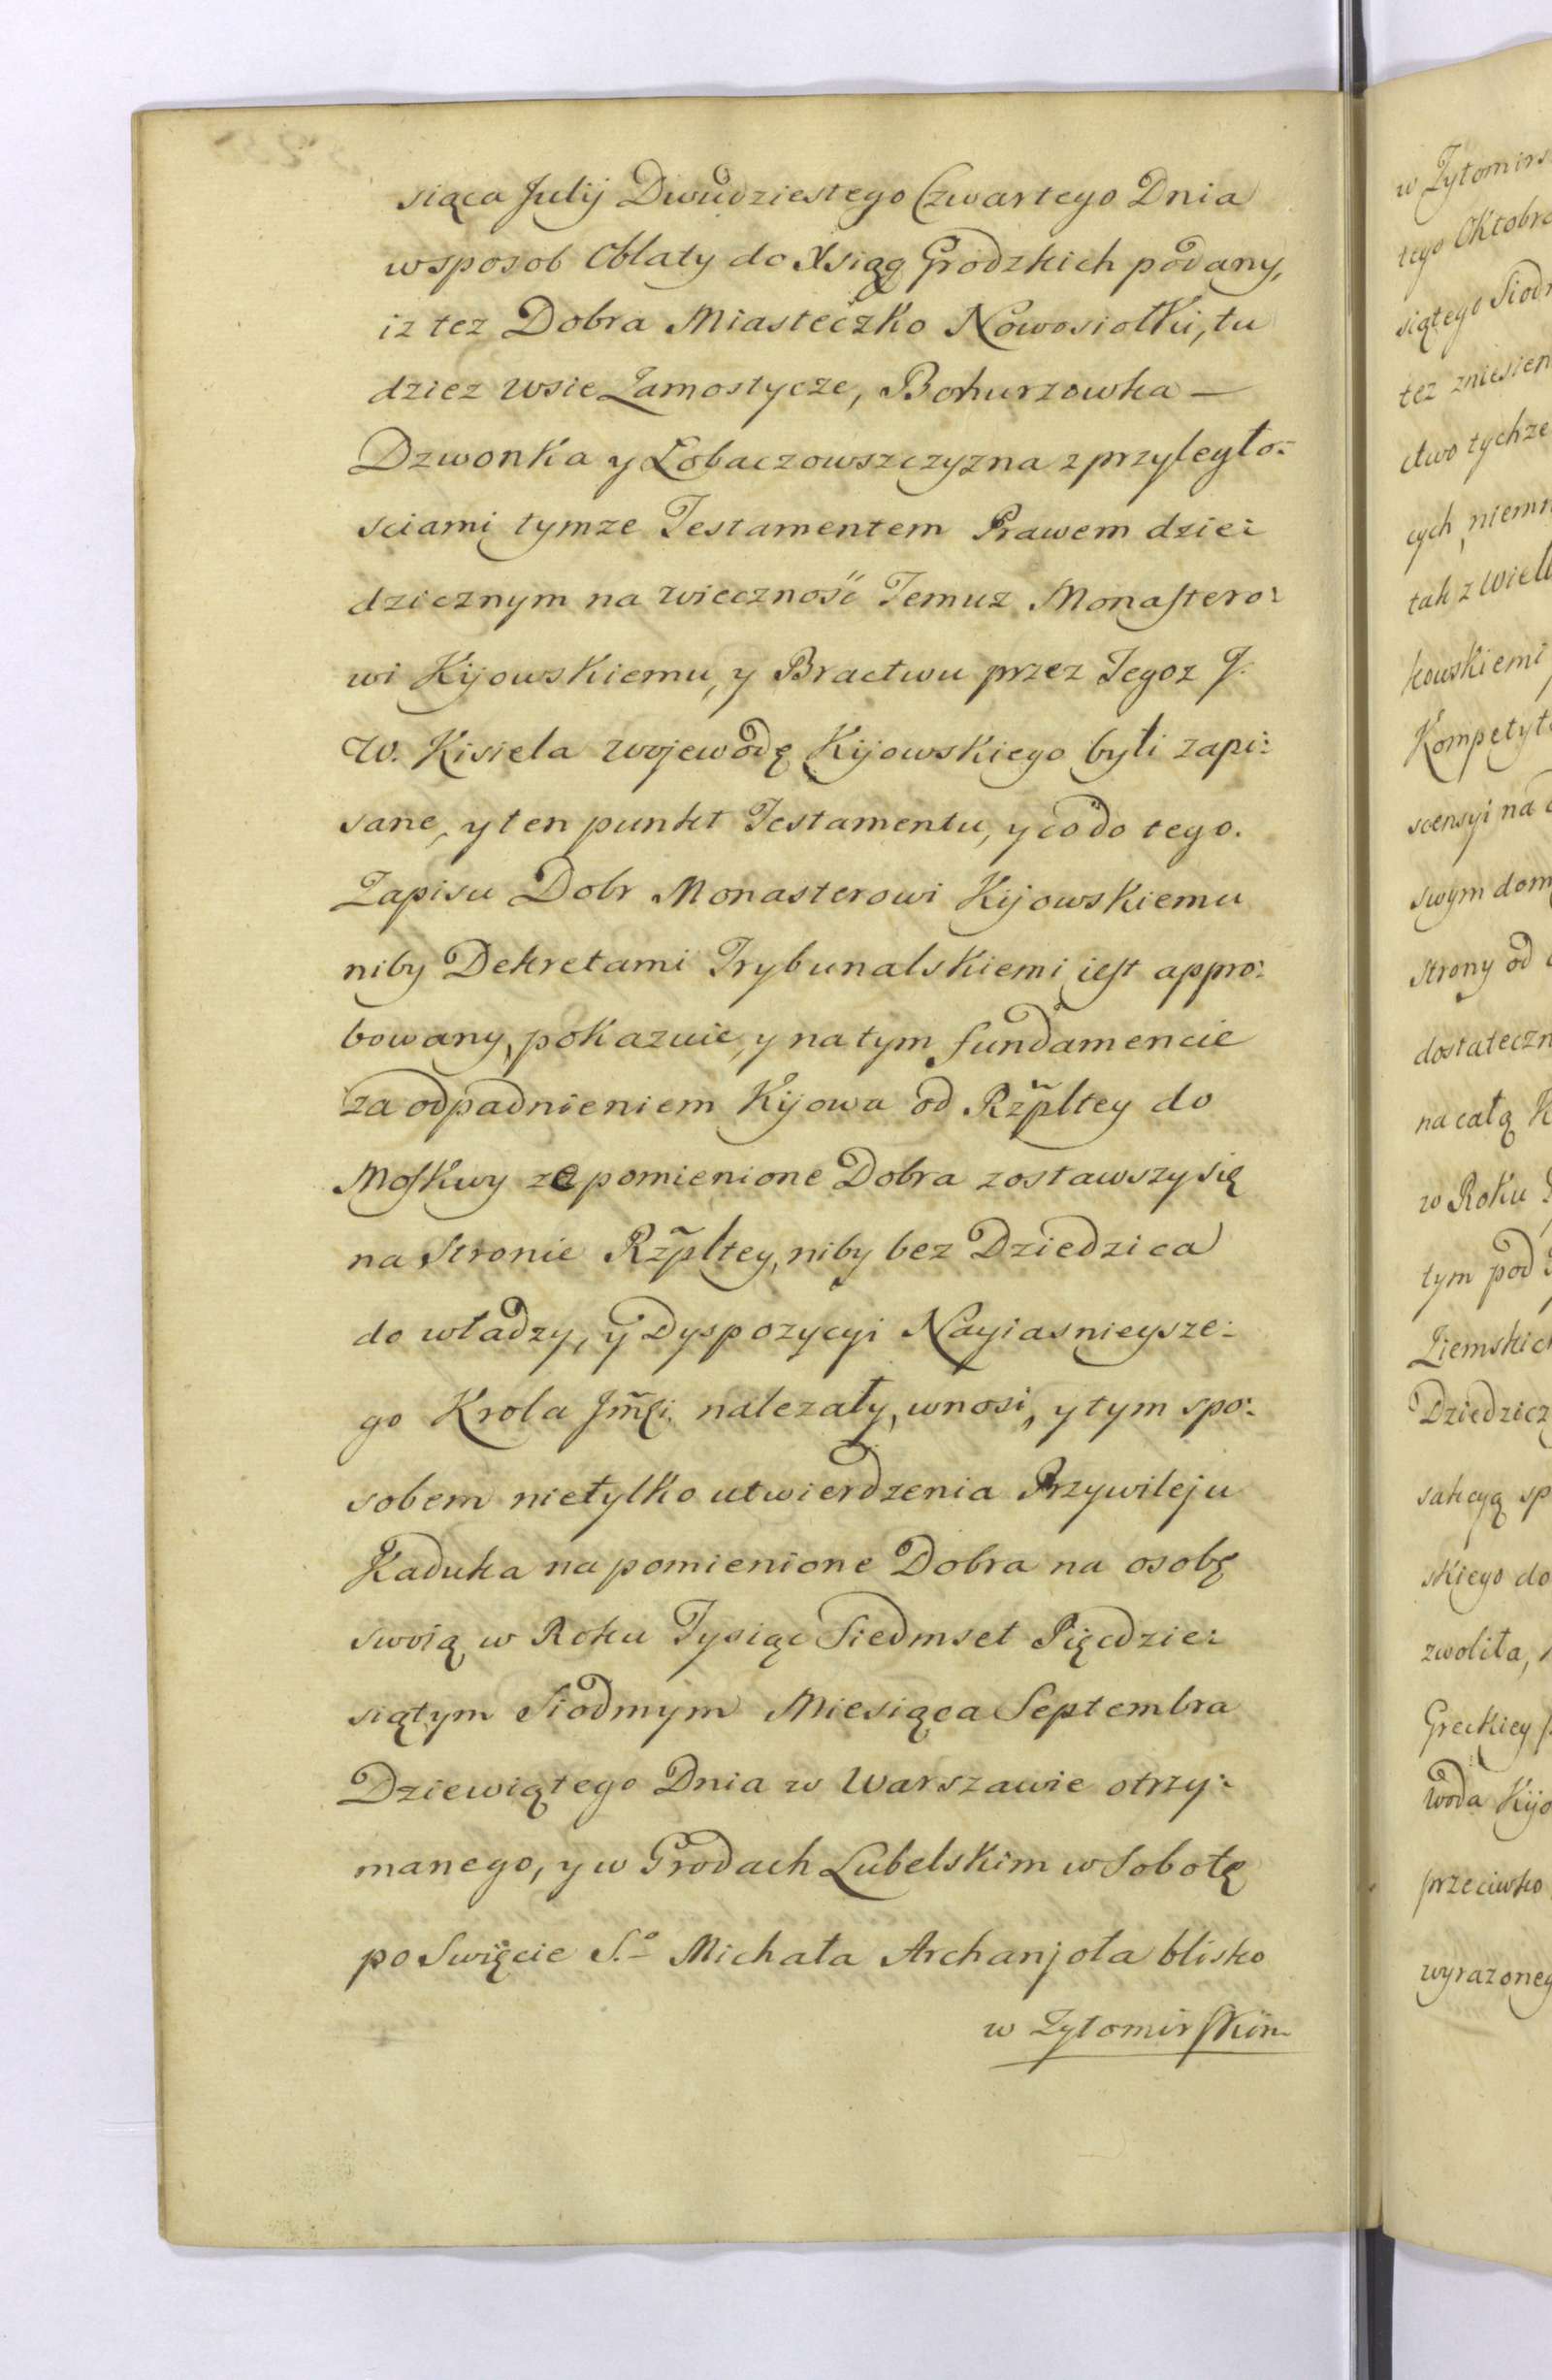 siąca Julij Dwudziestego Czwartego Dnia
w sposob Oblaty do Xsiąg Grodzkich podany,
iz tez Dobra Miasteczko Nowosiołki, tu
dziez wsie Zamostycze, Bohurzowka —
Dzwonka y Łobaczowszczyzna z przyległo:
sciami tymze Testamentem Prawem dzie:
dzicznym na wieczność Temuz Monastero:
wi Kijowskiemu, y Bractwu przez Tegoz J.
W. Kisiela Wojewodę Kijowskiego byli zapi:
sane, y ten punkt Testamentu, y co do tego.
Zapisu Dobr Monasterowi Kijowskiemu
niby Dekretami Trybunalskiemi iest appro:
bowany, pokazuie, y na tym fundamencie
za odpadnieniem Kijowa od Rzpltey do
Moskwy ze pomienione Dobra zostawszy się
na Stronie Rzpltey, niby bez Dziedzica
do władzy, y Dyspozycyi Nayiasnieysze:
go Krola Jmści należały, wnosi, y tym spo:
sobem nietylko utwierdzenia Przywileju
Kaduka na pomienione Dobra na osobę
swoią w Roku Tysiąc Siedmset Pięcdzie:
siątym Siodmym Miesiąca Septembra
Dziewiątego Dnia w Warszawie otrzy:
manego, y w Grodach Lubelskim w Sobotę
po Swięcie S.o Michała Archanjoła blisko
w Zytomirskim
w Zytomirs
tego Oktobra
siątego Siod
tez zniesien
ctwo tychze
cych niem
tak z Wiel
kowskiemi
Kompetyt
scensyi na
swym dom
strony od
dostateczn
na całą K
w Roku
tym pod
Ziemskich
Dziedzicz
sakcyą sp
skiego do
zwoliła,
Greckiey
woda Kijo
przeciwko
wyrazoney